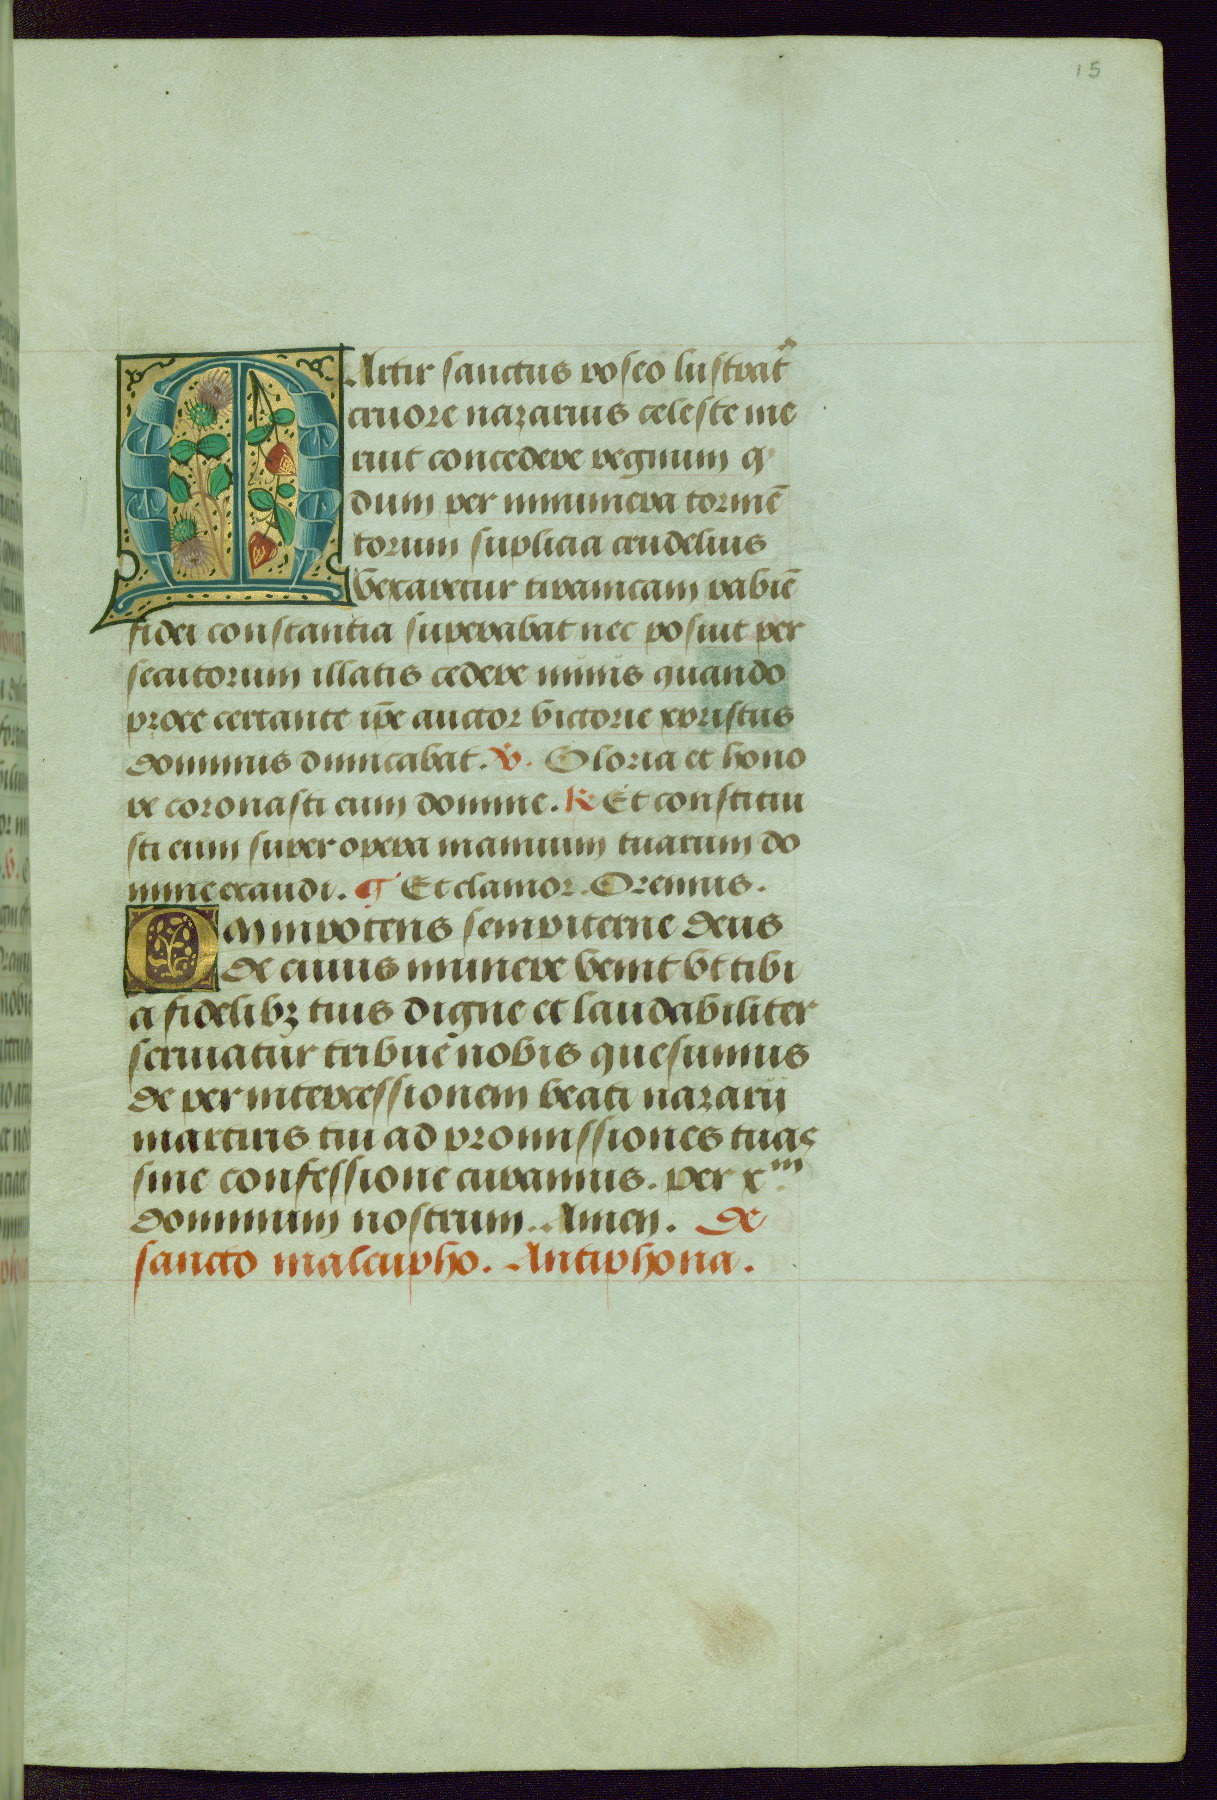 15
MArtir sanctus roseo lustrat᷑
cruore nazarius celeste me
ruit concedere regnum q
dum per innumera tormē
torum suplicia crudelius
vexaretur tiranicam rabiē
fidei constantia superabat nec posuit per
secutorum illatis cedere minis quando
proce certante ip̄e auctor victorie xpristus
dominus dimicabat. V. Gloria et hono
re coronasti eum domine. R Et constitui
sti eum super opera manuum tuarum do
mine exaudi. Et clamor. Oremus.
OMnipotens sempiterne deus
de cuius munere venit vt tibi
a fidelibꝫ tuis digne et laudabiliter
seruiatur tribue nobis quesumus
de per intercessionem beati nazarij
martiris tui ad promissiones tuas
sine confessione curamus. per xᵐ
dominum nostrum. Amen. De
sancto malcupho. Antiphona.